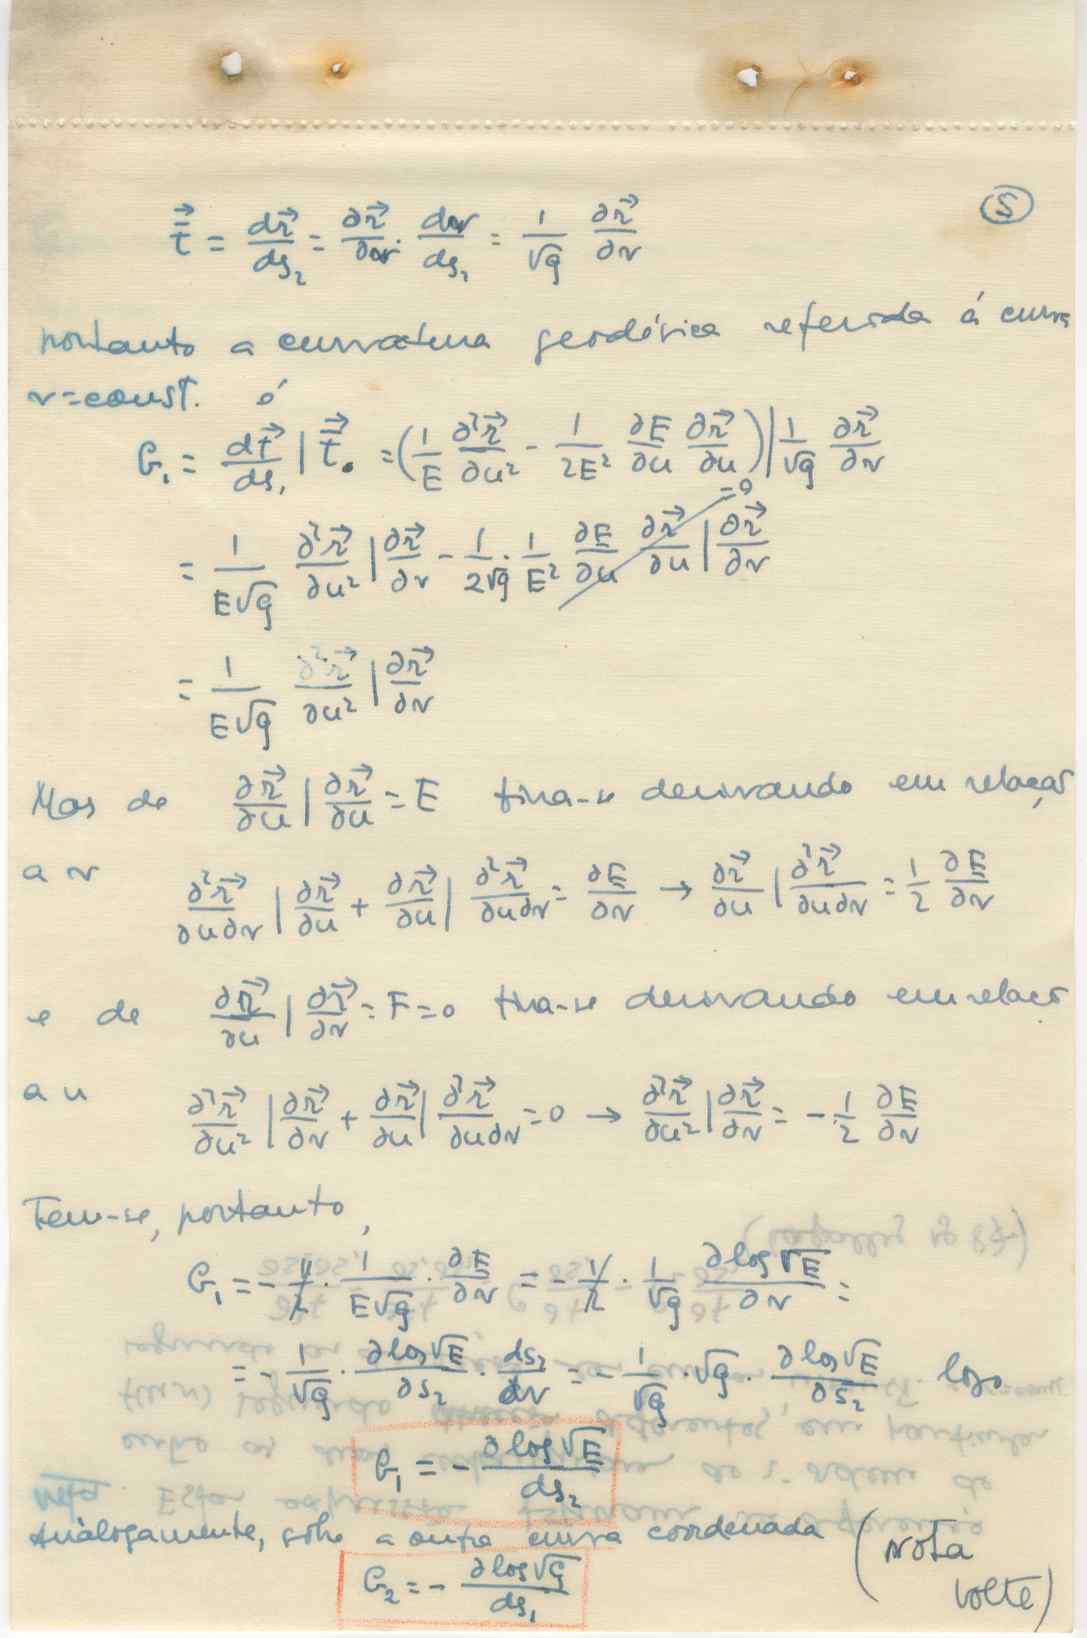 5
$\vec{\bar{t}} = \frac{d\vec{r}}{ds_2} = \frac{\partial\vec{r}}{\partial v} \cdot \frac{dv}{ds_2} = \frac{1}{\sqrt{g}} \frac{\partial\vec{r}}{\partial v}$
portanto a curvatura geodésica referida á curva
v=const. é
$G_1 = \frac{d\vec{t}}{ds_1} | \vec{\bar{t}}. = \left(\frac{1}{E} \frac{\partial^2\vec{r}}{\partial u^2} - \frac{1}{2E^2} \frac{\partial E}{\partial u} \frac{\partial\vec{r}}{\partial u}\right) | \frac{1}{\sqrt{g}} \frac{\partial\vec{r}}{\partial v}$
=0
$= \frac{1}{E\sqrt{g}} \frac{\partial^2\vec{r}}{\partial u^2} | \frac{\partial\vec{r}}{\partial v} - \frac{1}{2\sqrt{g}} \cdot \frac{1}{E^2} \frac{\partial E}{\partial u} \frac{\partial\vec{r}}{\partial u} | \frac{\partial\vec{r}}{\partial v}$
$= \frac{1}{E\sqrt{g}} \frac{\partial^2\vec{r}}{\partial u^2} | \frac{\partial\vec{r}}{\partial v}$
Mas de $\frac{\partial\vec{r}}{\partial u} | \frac{\partial\vec{r}}{\partial u} = E$ tira-se derivando em relaçao
a v
$\frac{\partial^2\vec{r}}{\partial u \partial v} | \frac{\partial\vec{r}}{\partial u} + \frac{\partial\vec{r}}{\partial u} | \frac{\partial^2\vec{r}}{\partial u \partial v} = \frac{\partial E}{\partial v} \rightarrow \frac{\partial\vec{r}}{\partial u} | \frac{\partial^2\vec{r}}{\partial u \partial v} = \frac{1}{2} \frac{\partial E}{\partial v}$
e de $\frac{\partial\vec{r}}{\partial u} | \frac{\partial\vec{r}}{\partial v} = F = 0$ tira-se derivando em relaçã
a u
$\frac{\partial^2\vec{r}}{\partial u^2} | \frac{\partial\vec{r}}{\partial v} + \frac{\partial\vec{r}}{\partial u} | \frac{\partial^2\vec{r}}{\partial u \partial v} = 0 \rightarrow \frac{\partial^2\vec{r}}{\partial u^2} | \frac{\partial\vec{r}}{\partial v} = -\frac{1}{2} \frac{\partial E}{\partial v}$
Tem-se, portanto,
$G_1 = -\frac{1}{2} \cdot \frac{1}{E\sqrt{g}} \cdot \frac{\partial E}{\partial v} = -\frac{1}{2} \cdot \frac{1}{\sqrt{g}} \frac{\partial \log\sqrt{E}}{\partial v} =$
$= -\frac{1}{\sqrt{g}} \cdot \frac{\partial \log\sqrt{E}}{\partial s_2} \cdot \frac{ds_2}{dv} = -\frac{1}{\sqrt{g}} \cdot \sqrt{g} \cdot \frac{\partial \log\sqrt{E}}{\partial s_2}$ logo
$G_1 = -\frac{\partial \log\sqrt{E}}{ds_2}$
Análogamente, sobre a outra curva coordenada (NOTA
$G_2 = -\frac{\partial \log\sqrt{G}}{ds_1}$ volte)